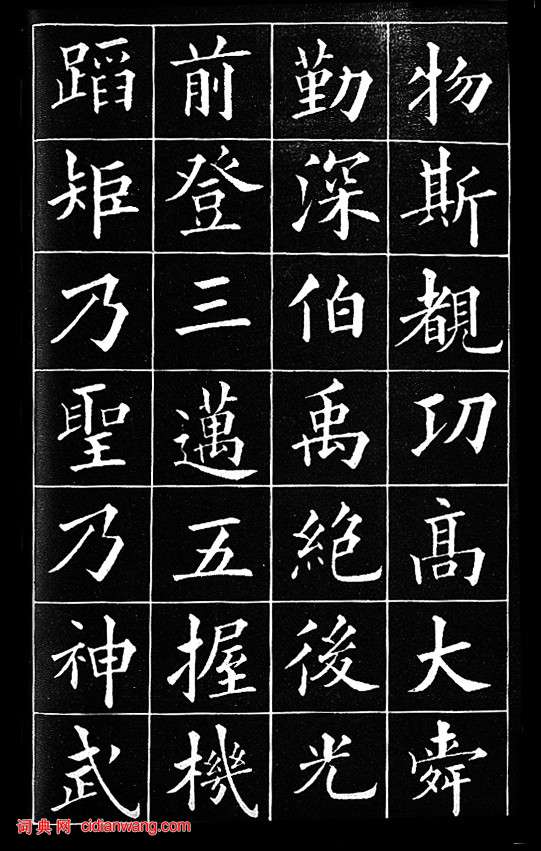 物斯覩功高大舜
勤深伯禹絶後光
前登三邁五握機
蹈矩乃聖乃神武
词典网 cidianwang.com